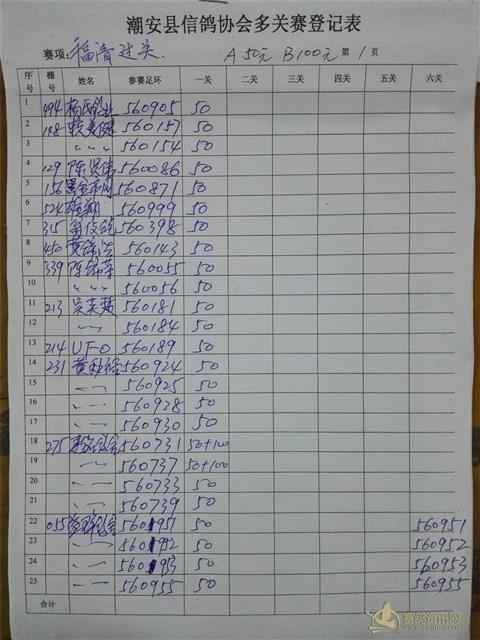 潮安县信鸽协会多关赛登记表
赛项: 福清过关 A 50元 B 100元 第 1 页
序号 棚号 姓名 参赛足环 一关 二关 三关 四关 五关 六关
1 494 560905 50
2 188 560157 50
3 〃 〃 560154 50
4 129 陈贤伟 560086 50
5 156 560871 50
6 524 560999 50
7 315 560398 50
8 450 560143 50
9 339 560055 50
10 〃 〃 560056 50
11 213 560181 50
12 560184 50
13 214 UFO 560189 50
14 231 560924 50
15 560925 50
16 560928 50
17 560930 50
18 275 560731 50+100
19 560737 50+100
20 560733 50
21 560739 50
22 055 560951 50 560951
23 560952 50 560952
24 560953 50 560953
25 560955 50 560955
合计